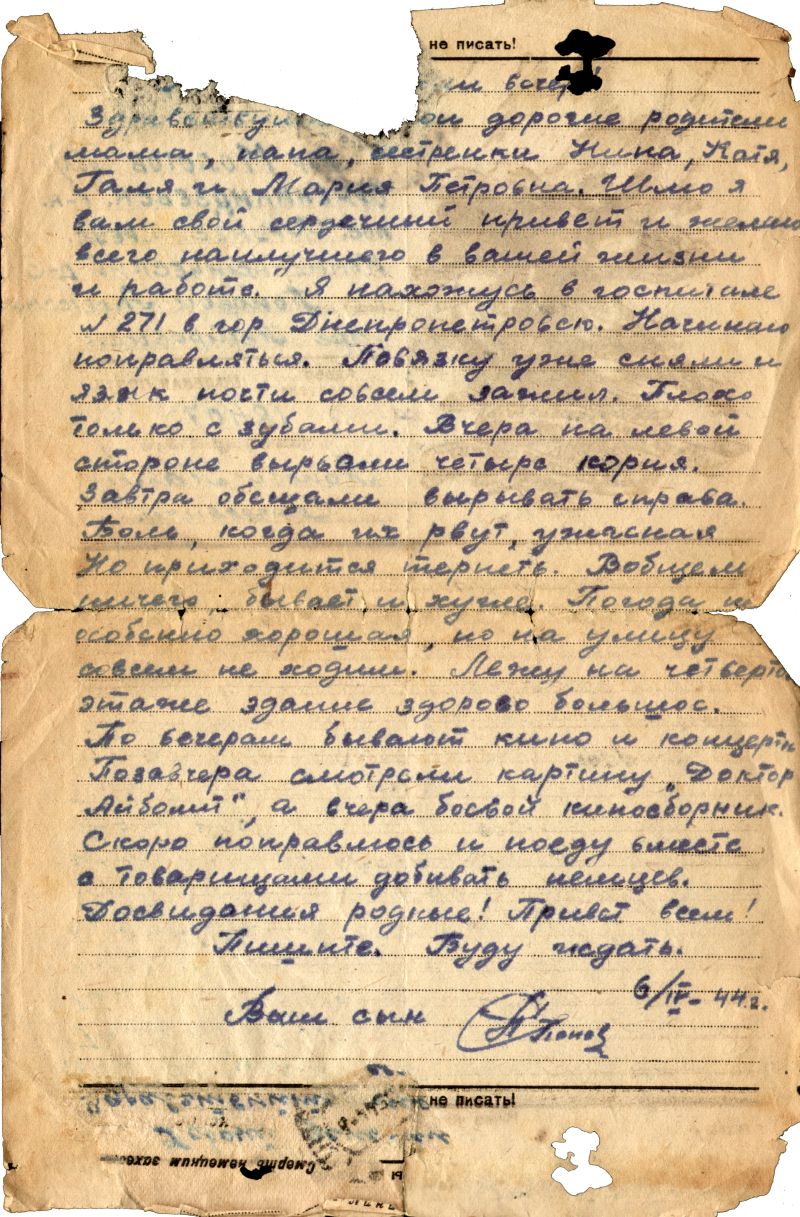 не писать!
вечер!
Здравствуй дорогие родители
мама, папа, сестренки Нина, Катя,
Галя и Мария Петровна. Шлю я
вам свой сердечный привет и желаю
всего наилучшего в вашей жизни
и работе. Я нахожусь в госпитале
№ 271 в гор Днепропетровск. Начинаю
поправляться. Повязку уже сняли и
язык почти совсем зажил. Плохо
только с зубами. Вчера на левой
стороне вырвали четыре корня.
Завтра обещали вырывать справа.
Боль, когда их рвут, ужасная
Но приходится терпеть. Вобщем
ничего, бывает и хуже. Погода
особенно хорошая, но на улицу
совсем не ходим. Лежу на четверт
этаже здание здорово большое.
По вечерам бывают кино и концерты
Позавчера смотрели картину „Доктор
Айболит", а вчера боевой киносборник.
Скоро поправлюсь и поеду вместе
с товарищами добивать немцев.
Досвидания родные! Привет всем!
Пишите. Буду ждать.
6/IV-44г.
Ваш сын Попов
не писать!
Смерть немецким захват